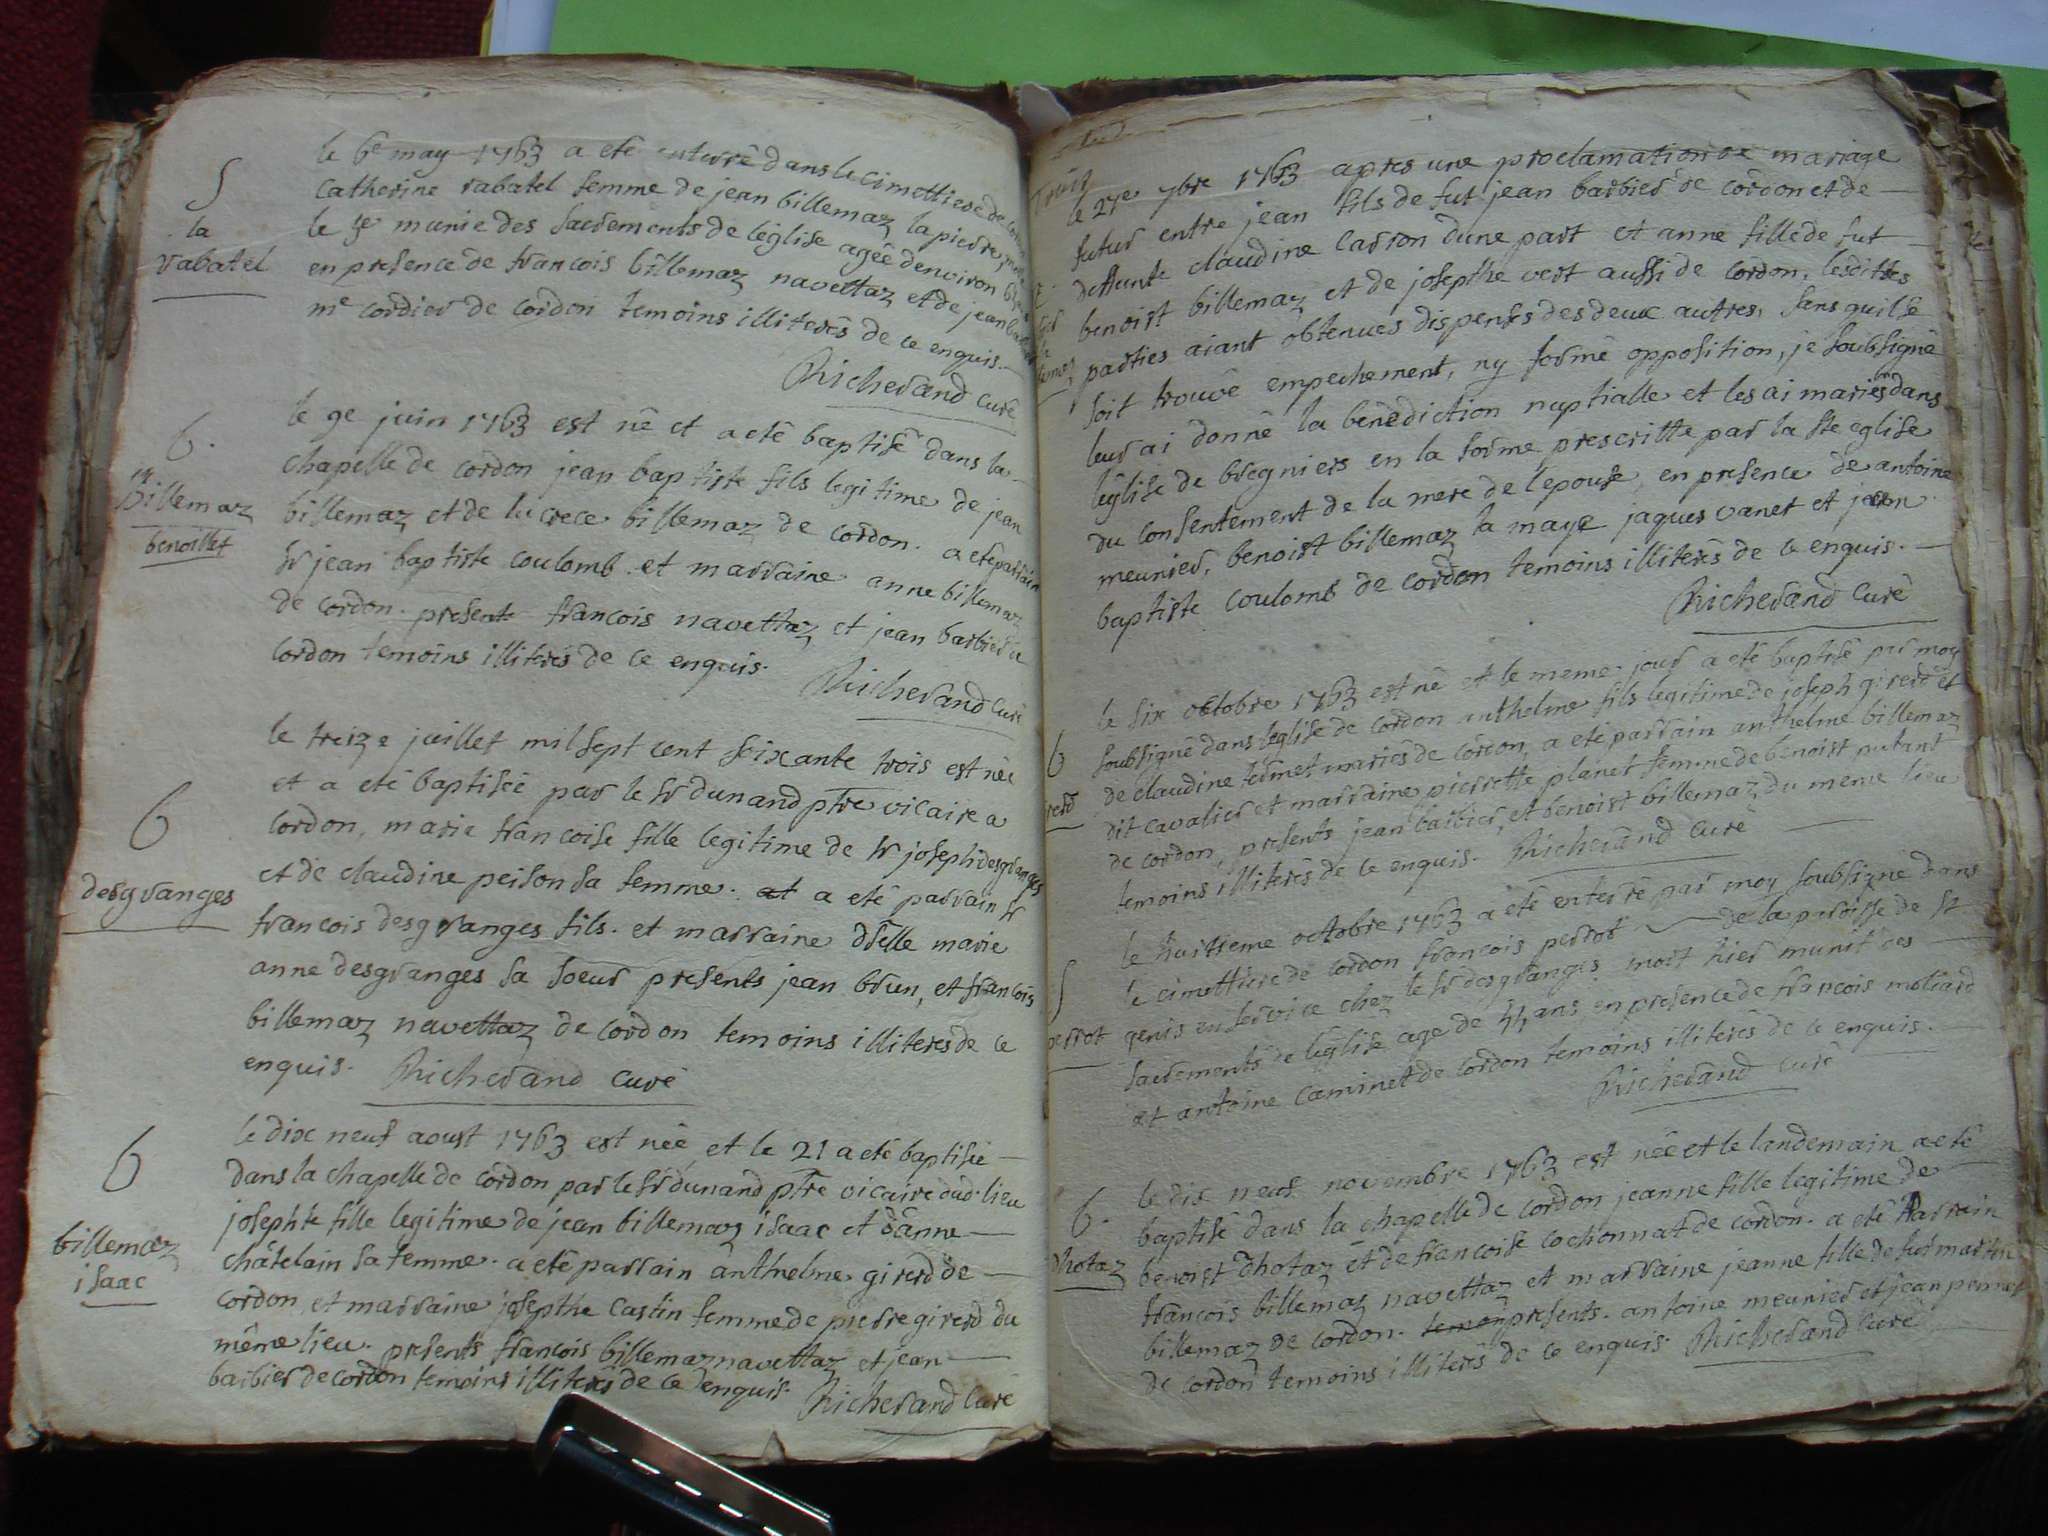 S
la
rabatel
le 6e may 1763 a eté enterré dans le cimettiere de
Catherine rabatel femme de jean billemaz la pierre
le 5e munie des sacrements de l'eglise agée denviron
en presence de francois billemaz navettaz et de jean
me cordier de cordon temoins illiterés de ce enquis.
Richerand curé
6.
Billemaz
benoillet
le 9e juin 1763 est né et a eté baptisé dans la
chapelle de cordon jean baptiste fils legitime de jean
billemaz et de lucrece billemaz de cordon. a eté parrain
Sr jean baptiste coulomb. et marraine anne billemaz
de cordon. presents francois navettaz et jean barbier de
cordon temoins illiterés de ce enquis.
Richerand curé
6
desgranges
le treize juillet mil sept cent soixante trois est née
et a eté baptisée par le Sr dunand ptre vicaire a
cordon, marie francoise fille legitime de Sr joseph desgranges
et de claudine peison sa femme. et a eté parrain Sr
francois desgranges fils. et marraine dselle marie
anne desgranges sa soeur presents jean brun, et francois
billemaz navettaz de cordon temoins illiterés de ce
enquis. Richerand curé
6
billemaz
isaac
le dix neuf aoust 1763 est née et le 21 a eté baptisée
dans la chapelle de cordon par le Sr dunand ptre vicaire dud. lieu
josephte fille legitime de jean billemaz isaac et d'anne
châtelain sa femme. a eté parrain anthelme girerd de
cordon et marraine josepthe castin femme de pierre girerd du
même lieu. presents francois billemaz navettaz et jean
barbier de cordon temoins illiterés de ce enquis.
Richerand curé
le 27e 7bre 1763 apres une proclamation de mariage
futur entre jean fils de fut jean barbier de cordon et de
deffunte claudine carron d'une part et anne fille de fut
benoist billemaz et de josepthe vert aussi de cordon, lesdittes
parties aiant obtenues dispenses des deux autres, sans quil se
soit trouvé empechement, ny formé opposition, je soubsigné
leur ai donné la bénédiction nuptialle et les ai mariés dans
l'église de bregniers en la forme prescritte par la Ste eglise
du consentement de la mere de l'epouse, en presence de antoine
meunier, benoist billemaz la maye jaques vanet et jean
baptiste coulomb de cordon temoins illiterés de ce enquis.
Richerand curé
6
le six octobre 1763 est né et le meme jour a eté baptisé par moy
soubsigné dans l'eglise de cordon anthelme fils legitime de joseph girerd et
de claudine termet mariés de cordon, a eté parrain anthelme billemaz
dit cavalier et marraine pierrette planet femme de benoist putant
de cordon, presents jean barbier, et benoist billemaz du meme lieu
temoins illiterés de ce enquis. Richerand curé
S
perrot
le huitieme octobre 1763 a eté enterré par moy soubsigné dans
le cimettiere de cordon francois perrot de la paroisse de St
genis en service chez le Sr desgranges mort hier munit des
sacrements de l'église agé de ans en presence de francois moliard
et antoine caminet de cordon temoins illiterés de ce enquis.
Richerand curé
6.
dhotaz
le dix neuf novembre 1763 est née et le landemain a eté
baptisé dans la chapelle de cordon jeanne fille legitime de
benoist dhotaz et de francoise cochonnat de cordon. a eté parrain
francois billemaz navettaz et marraine jeanne fille de fut martin
billemaz de cordon. presents. antoine meunier et jean pennet
de cordon temoins illiterés de ce enquis. Richerand curé